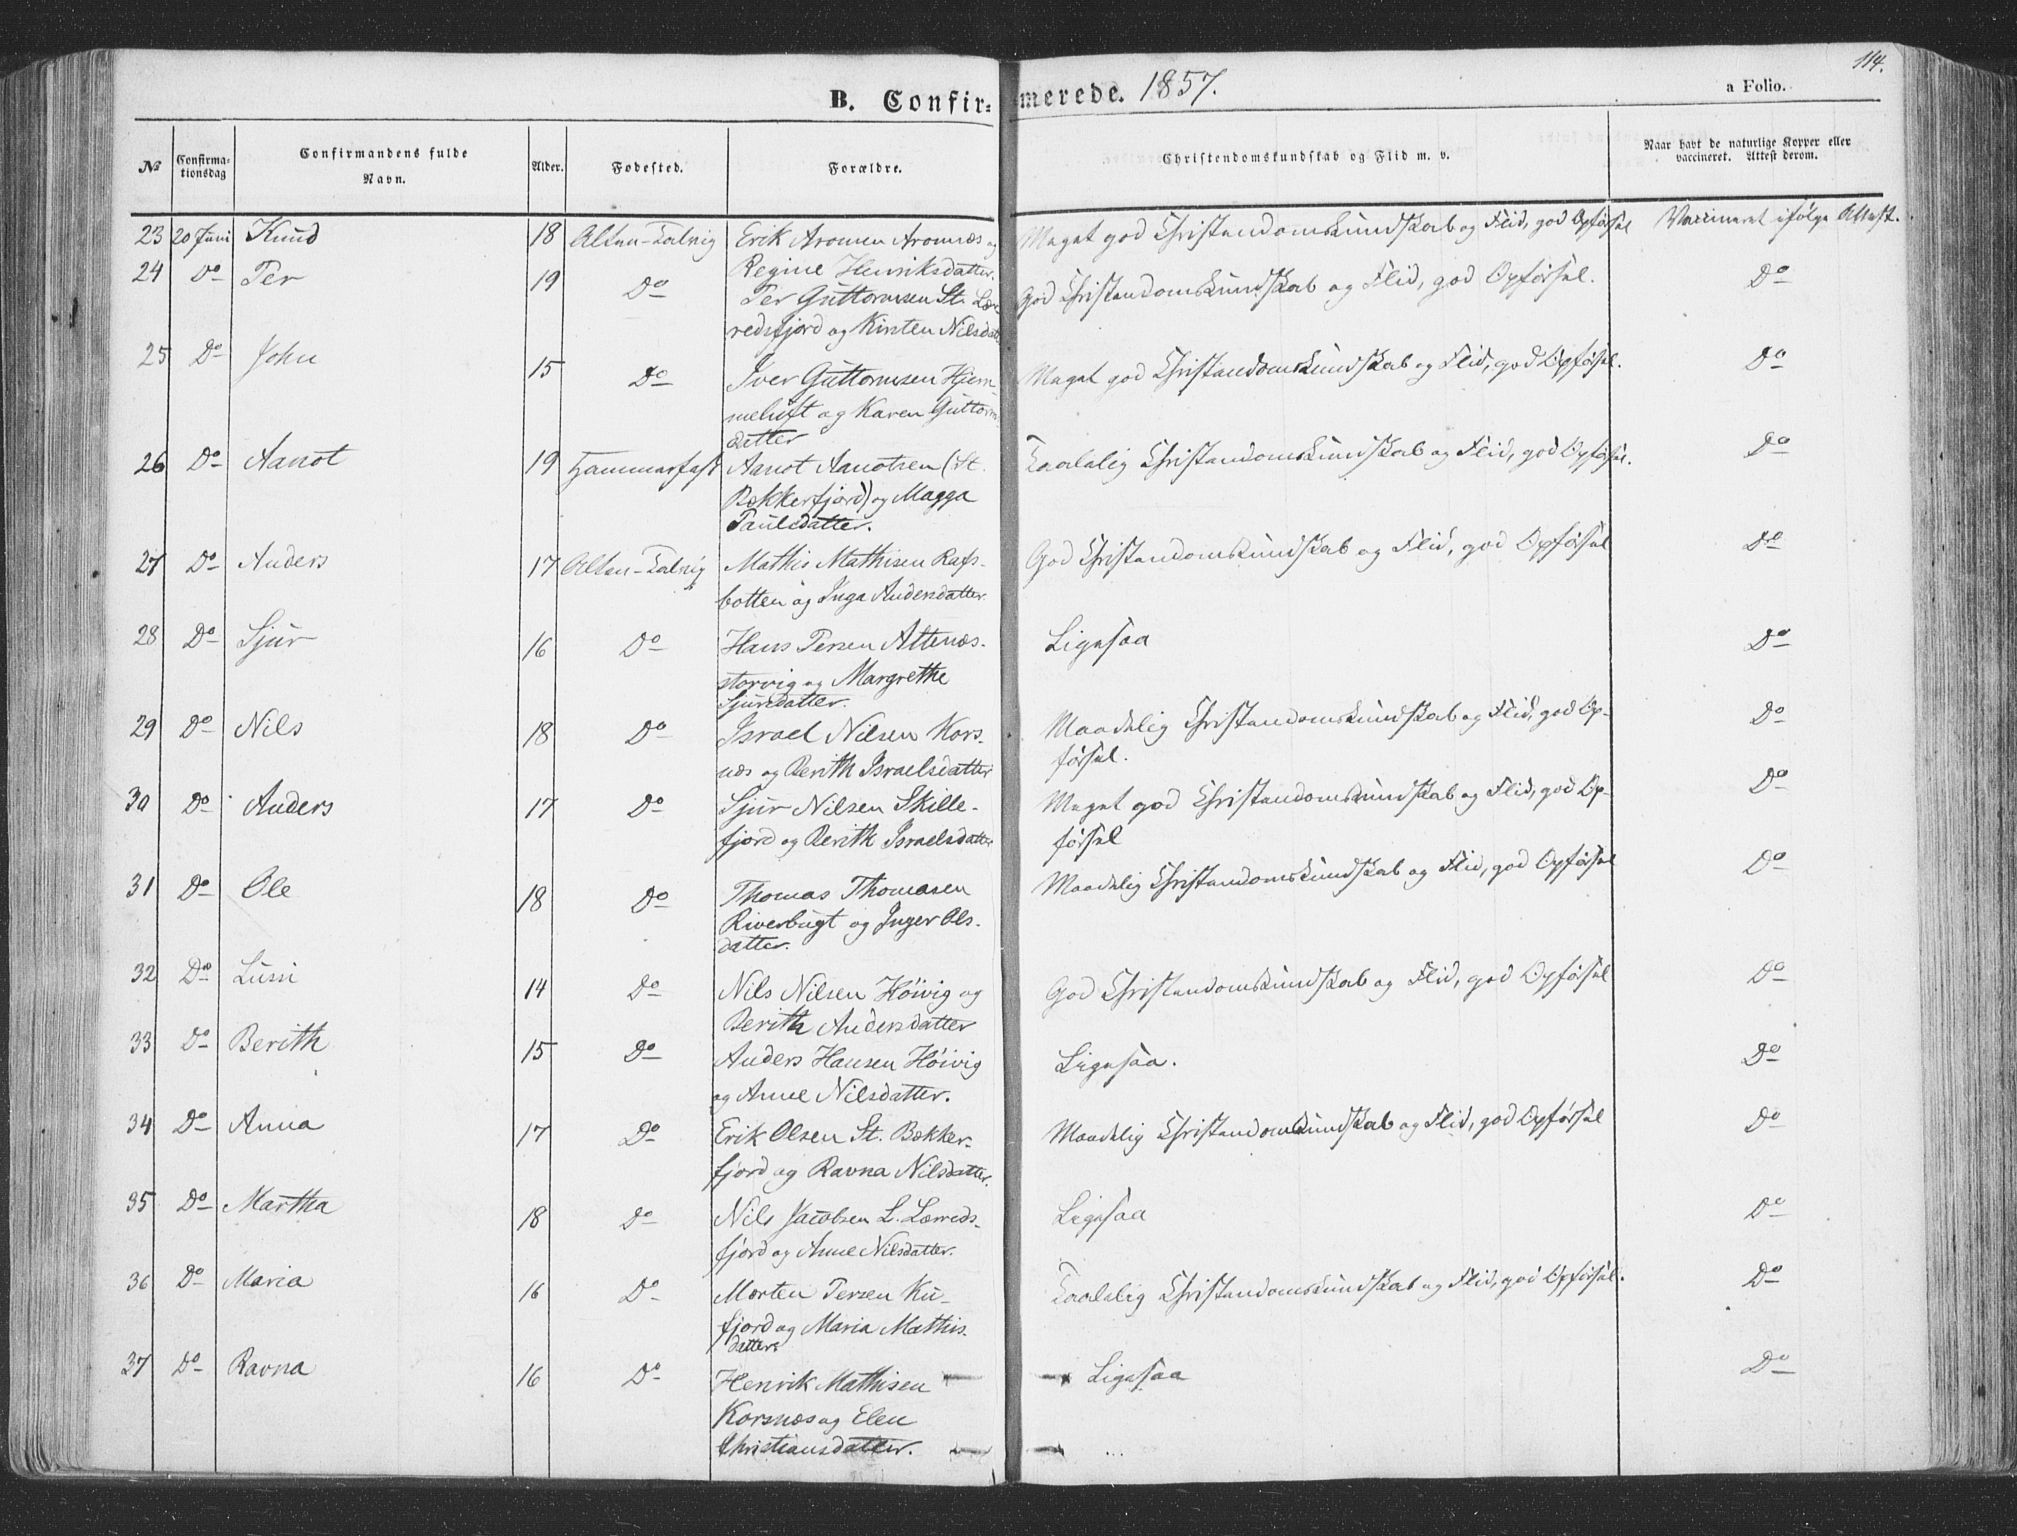 114.
B. Confir=merede. 1857.
a Folio.
No
Confirma-
tionsdag
Confirmandens fulde
Navn.
Alder.
Fødested.
Forældre.
Christendomskundskab og Flid m. v.
Naar havt de naturlige Kopper eller
vaccineret. Attest derom.
23 20 Juni Knud 18 Alten-Talvig Erik Aronsen Aronnæs og Meget god Christendomskundskab og Flid, god Opførsel Vaccineret ifølge Attest.
Regine Henriksdatter.
24 Do Per 19 Do Per Guttormsen St. Lær- God Christendomskundskab og Flid, god Opførsel. Do
redsfjord og Kirsten Nilsdat
25 Do John 15 Do Iver Guttormsen Hjem- Meget god Christendomskundskab og Flid, god Opførsel. Do
meluft og Karen Guttorm
datter
26 Do Aanot 19 Hammerfest Aanot Aanotsen (St. Taalelig Christendomskundskab og Flid, god Opførsel. Do
Bekkerfjord) og Magga
Paulsdatter.
27 Do Anders 17 Alten-Talvig Mathis Mathisen Rafs- God Christendomskundskab og Flid, god Opførsel Do
botten og Inga Andersdatter
28 Do Sjur 16 Do Hans Persen Altenæs- Ligesaa Do
storvig og Margrethe
Sjursdatter.
29 Do Nils 18 Do Israel Nilsen Kors- Maadelig Christendomskundskab og Flid, god Op-
næs og Berith Israelsdatter førsel. Do
30 Do Anders 17 Do Sjur Nilsen Skille- Meget god Christendomskundskab og Flid, god Op-
fjord og Berith Israelsdatter førsel Do
31 Do Ole 18 Do Thomas Thomasen Maadelig Christendomskundskab og Flid, god Opførsel Do
Riverbugt og Inger Ols-
datter.
32 Do Lussi 14 Do Nils Nilsen Høivig og God Christendomskundskab og Flid, god Opførsel Do
Berith Andersdatter
33 Do Berith 15 Do Anders Hansen Høivig Ligesaa. Do
og Anne Nilsdatter.
34 Do Anna 17 Do Erik Olsen St. Bækker- Maadelig Christendomskundskab og Flid, god Opførsel Do
fjord og Ravna Nilsdatter.
35 Do Martha 18 Do Nils Jacobsen L. Lærreds- Ligesaa Do
fjord og Anne Nilsdatter.
36 Do Maria 16 Do Morten Persen Ku- Taalelig Christendomskundskab og Flid, god Opførsel. Do
fjord og Maria Mathis-
datter
37 Do Ravna 16 Do Henrik Mathisen Ligesaa Do
Korsnæs og Elen
Christiansdatter.